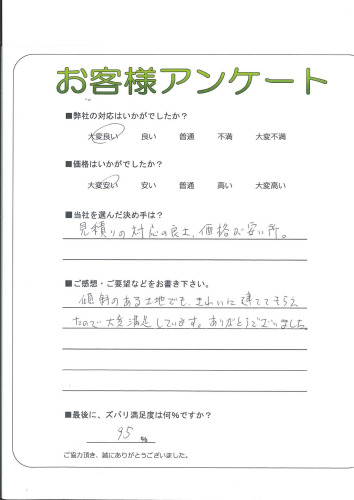 お客様アンケート
■弊社の対応はいかがでしたか?
大変良い 良い 普通 不満 大変不満
■価格はいかがでしたか?
大変安い 安い 普通 高い 大変高い
■当社を選んだ決め手は?
見積りの対応の良さ、価格が安い所。
■ご感想・ご要望などをお書き下さい。
傾斜のある土地でも、きれいに建ててもらえ
たので大変満足しています。ありがとうございました。
■最後に、ズバリ満足度は何%ですか?
95 %
ご協力頂き、誠にありがとうございました。